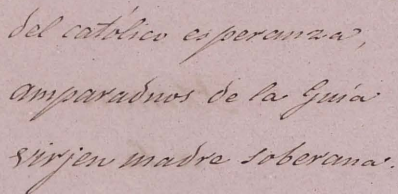 del católico esperanza,
amparadnos de la Guía
virjen madre soberana.